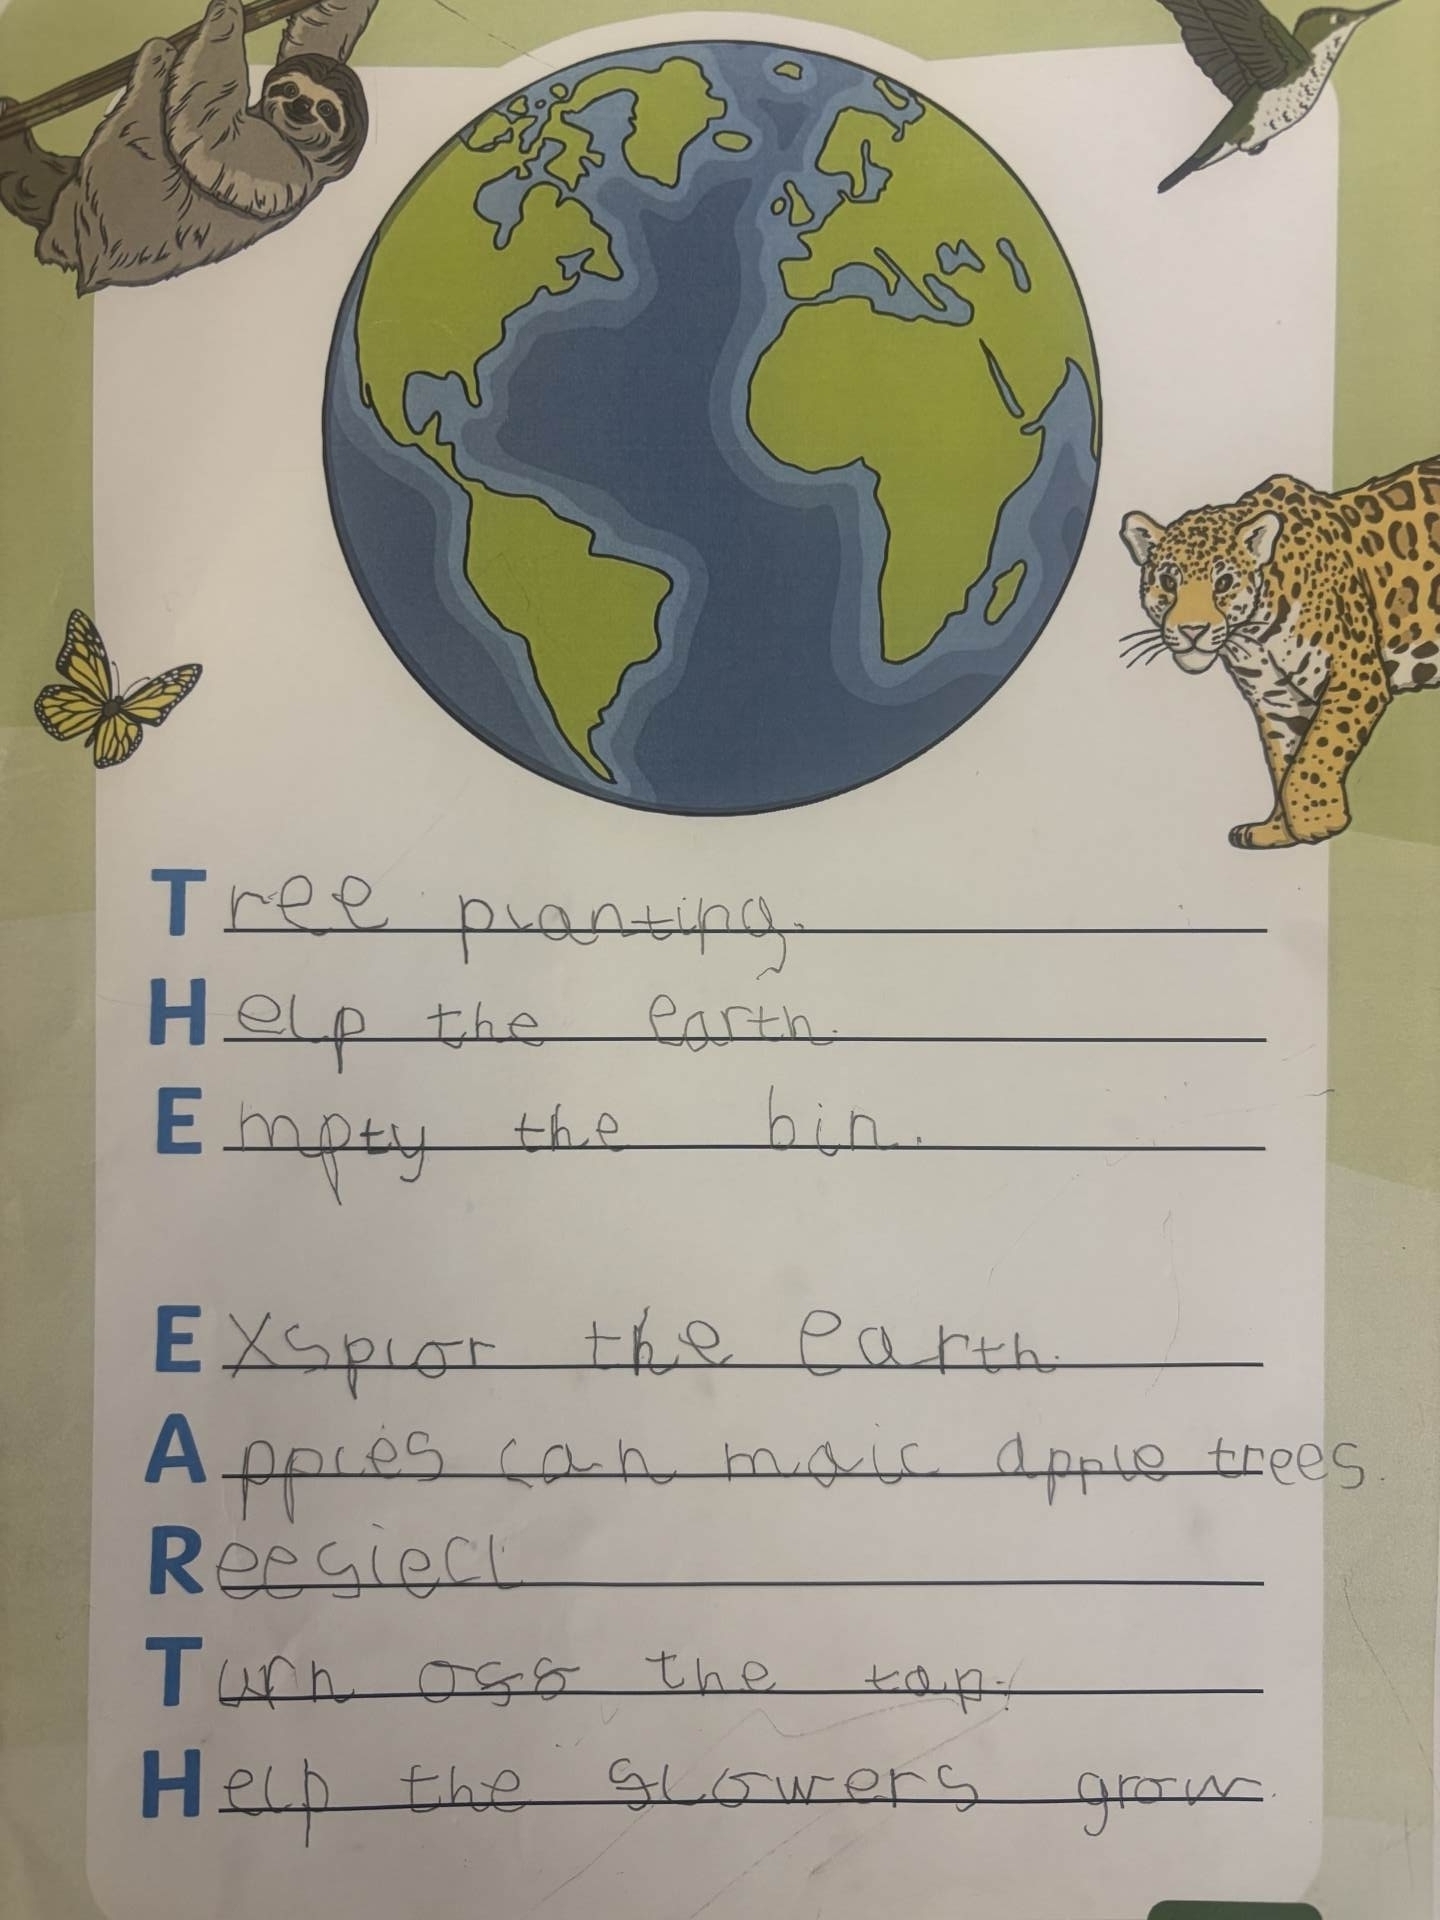 Tree planting.
Help the earth.
Empty the bin.
Exsplor the earth.
Apples can maic apple trees.
Reesiecl
Turn off the tap.
Help the flowers grow.